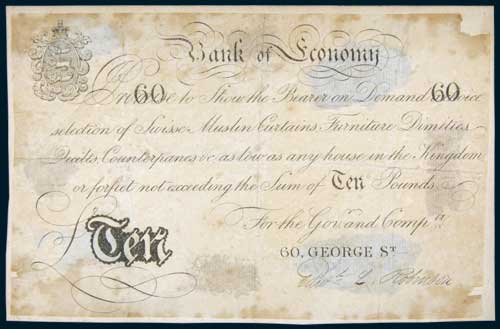 Bank of Economy
60 60
Engage to Show the Bearer on Demand a choice
selection of Swiss Muslin Curtains, Furniture Dimities
Quilts, Counterpanes &c as low as any house in the Kingdom
or forfeit not exceeding the Sum of Ten Pounds
For the Gov.r and Comp.a
Ten
60, GEORGE ST
Robinson